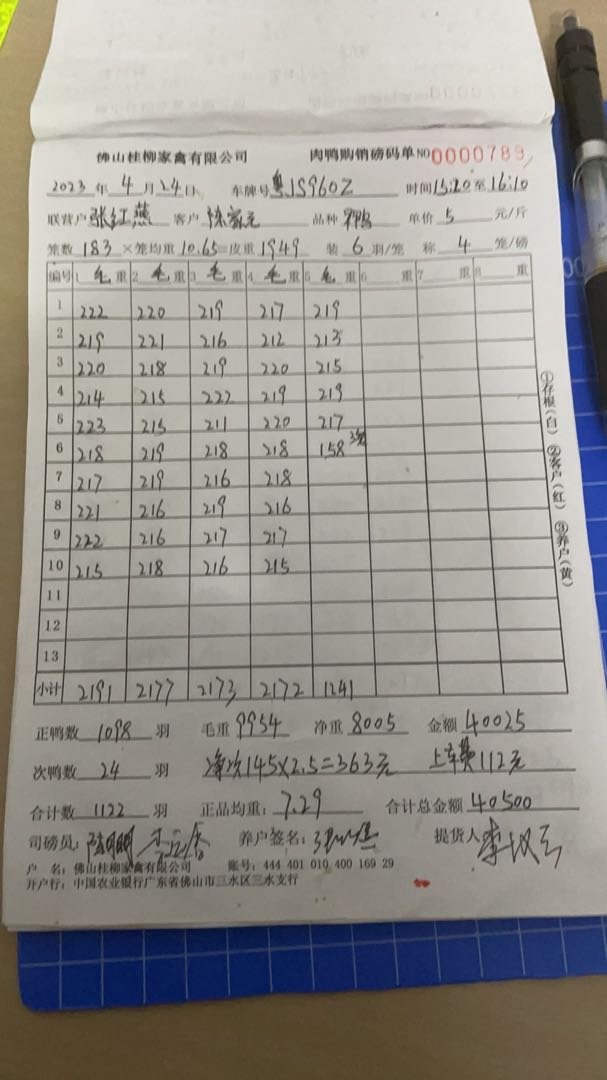 佛山桂柳家禽有限公司 肉鸭购销磅码单 NO 0000789
2023年4月24日 车牌号 粤JS960Z 时间15:20至16:10
联营户 张红燕 客户 品种 鸭 单价 5 元/斤
笼数 183 ×笼均重 10.65=皮重 1949 装 6 羽/笼 称 4 笼/磅
编号 1 毛重 2 毛重 3 毛重 4 毛重 5 毛重 6 重 7 重 8 重
1 222 220 219 217 219
2 219 221 216 212 213
3 220 218 219 220 215
4 214 215 222 219 219
5 223 215 211 220 217
6 218 219 218 218 158
7 217 219 216 218
8 221 216 219 216
9 222 216 217 217
10 215 218 216 215
11
12
13
小计 2191 2177 2173 2172 1241
正鸭数 1098 羽 毛重 9954 净重 8005 金额 40025
次鸭数 24 羽 净次145×2.5=363元 上车费112元
合计数 1122 羽 正品均重: 7.29 合计总金额 40500
司磅员: 养户签名: 提货人
户 名: 佛山桂柳家禽有限公司 账号: 444 401 010 400 169 29
开户行: 中国农业银行广东省佛山市三水区三水支行
①存根(白) ②客户(红) ③养户(黄)